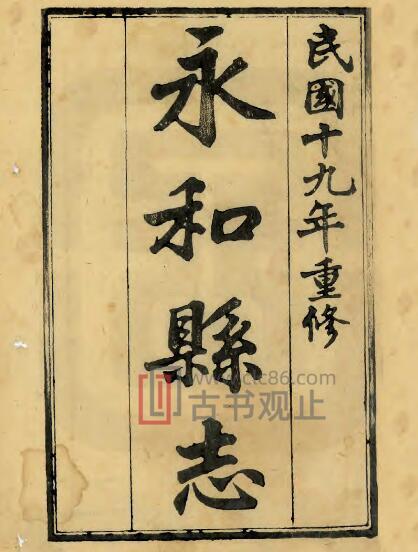 民國十九年重修
永和縣志
www.ctc86.com
古书观止